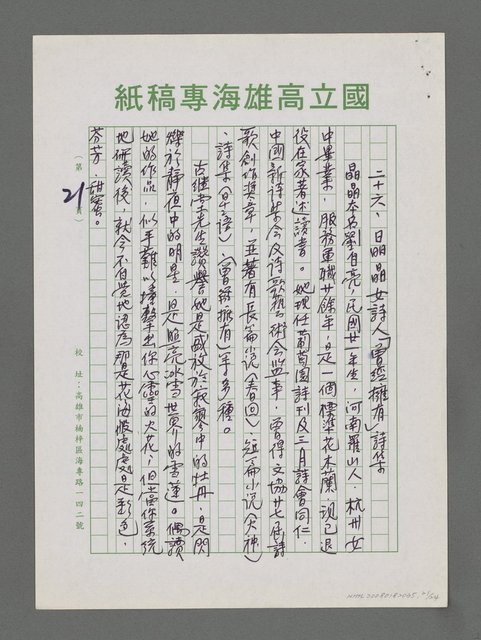 國立高雄海專稿紙
二十六、日晶晶女詩人「曾經擁有」詩集
晶晶本名劉自亮,民國廿一年生,河南羅山人,杭州女
中畢業,服務軍職廿餘年,是一個標準花木蘭,現已退
役在家著述讀書。她現任葡萄園詩刊及三月詩會同仁,
中國新詩學會及詩歌藝術會監事,曾得文協廿七屆詩
歌創作獎章,並著有長篇小說(春回)短篇小說(火神)
,詩集(星語)、(曾經擁有)等多種。
古繼堂先生讚譽她是盛放於寂寥中的牡丹,是閃
爍於靜夜中的明星,是照亮冰雪世界的雪蓮。偶讀
她的作品,似乎難以撞擊出你心靈的火花,但當你系統
地研讀後,就會不自覺地認為那是花油般處處是彩色,
芬芳,甜蜜。
(第21頁)
校址:高雄市楠梓區海專路一四二號